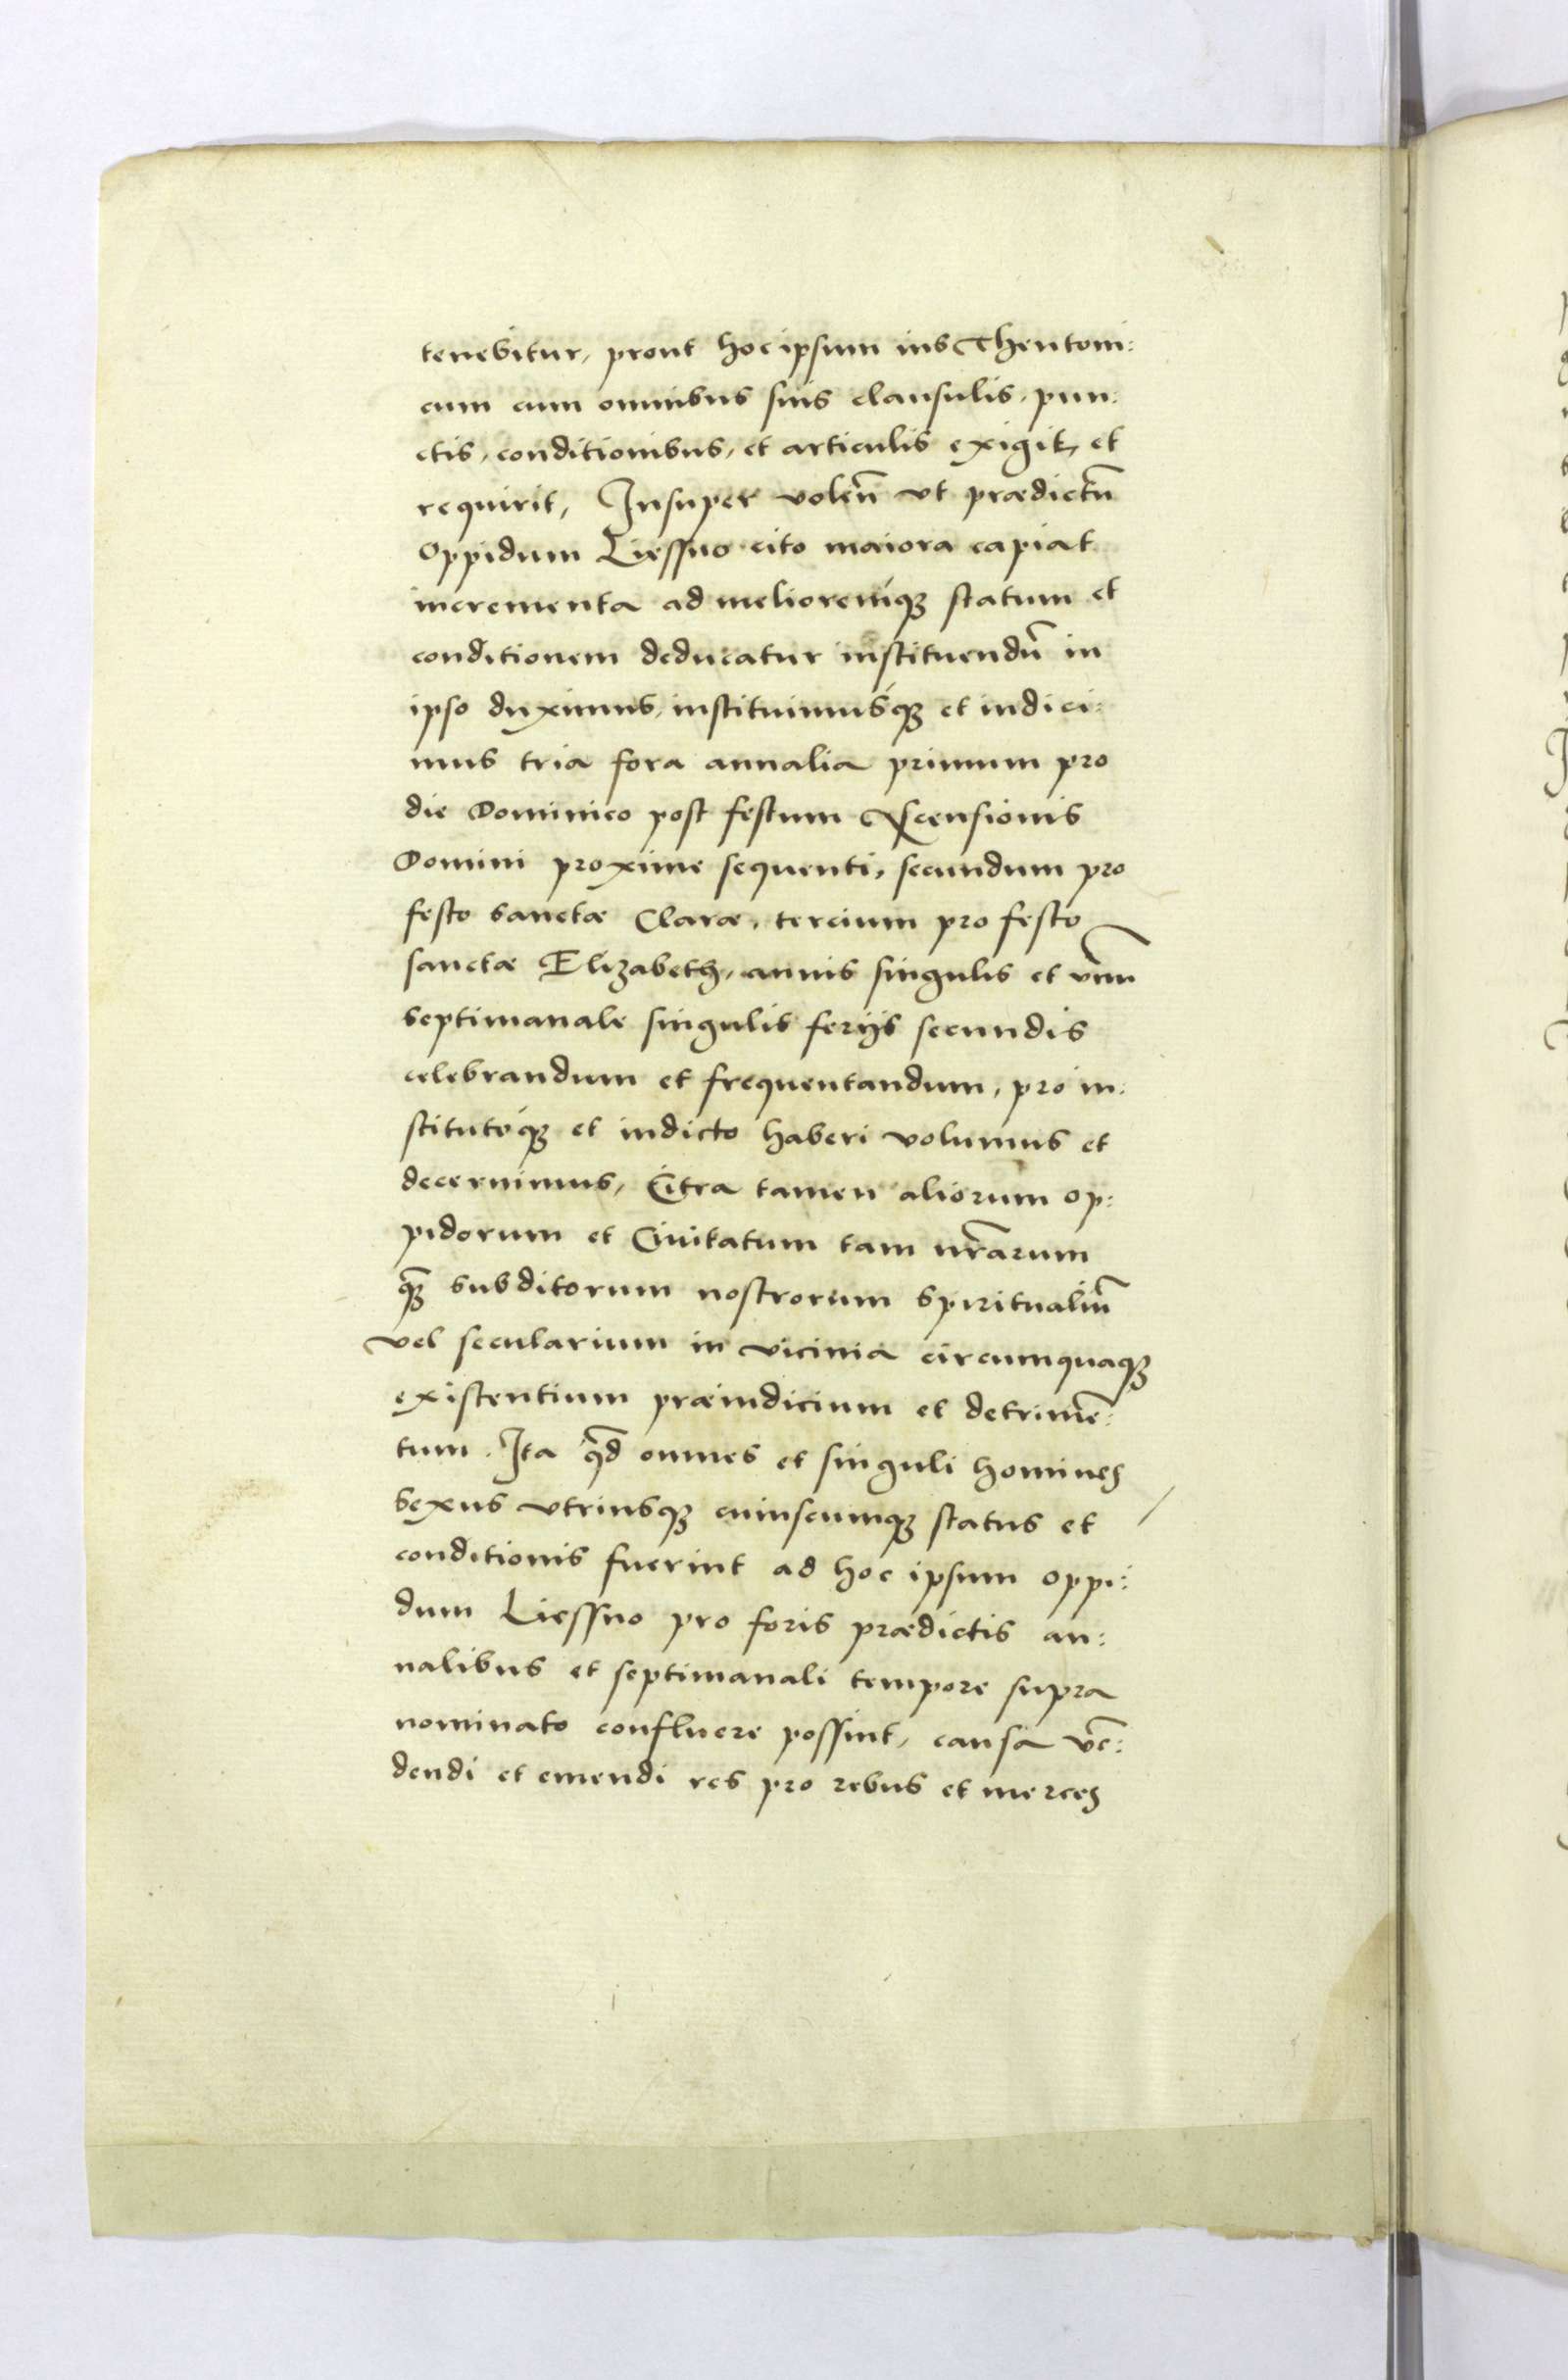 tenebitur, prout hoc ipsum ius Theutoni:
cum cum omnibus suis clausulis, pun:
ctis, conditionibus, et articulis exigit, et
requirit, Insuper volen̄ vt prædictū
Oppidum Liessno cito maiora capiat
incrementa ad melioremq́ꝫ statum et
conditionem deducatur instituendū in
ipso duximus, instituimusq́ꝫ et indici:
mus tria fora annalia primum pro
die Dominico post festum Ascensionis
Domini proxime sequenti, secundum pro
festo sanctæ Claræ, tercium pro festo
sanctæ Elizabeth, annis singulis et vnū
septimanale singulis ferijs secundis
celebrandum et frequentandum, pro in:
stitutoq́ꝫ et indicto haberi volumus et
decernimus, Citra tamen aliorum op:
pidorum et Ciuitatum tam nr̄arum
qꝫ̄ subditorum nostrorum spiritualiū
vel secularium in vicinia circumquaqꝫ
existentium præiudicium et detrimē:
tum. Ita qd̄ omnes et singuli homines
sexus vtriusqꝫ cuiuscumqꝫ status et
conditionis fuerint ad hoc ipsum oppi:
dum Liessno pro foris prædictis an:
nalibus et septimanali tempore supra
nominato confluere possint, causa vē:
dendi et emendi res pro rebus et merces